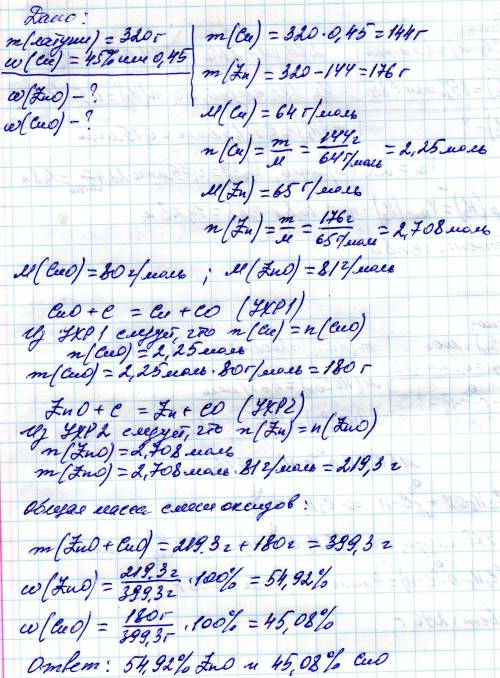 Дано:
m(латуни) = 320 г
ω(Cu) = 45% или 0,45
ω(ZnO) – ?
ω(CuO) – ?
m(Cu) = 320 · 0,45 = 144 г
m(Zn) = 320 – 144 = 176 г
M(Cu) = 64 г/моль
n(Cu) = m/M = 144г/64г/моль = 2,25 моль
M(Zn) = 65 г/моль
n(Zn) = m/M = 176г/65г/моль = 2,708 моль
M(CuO) = 80 г/моль ; M(ZnO) = 81 г/моль
CuO + C = Cu + CO (УХР1)
Из УХР1 следует, что n(Cu) = n(CuO)
n(CuO) = 2,25 моль
m(CuO) = 2,25 моль · 80 г/моль = 180 г
ZnO + C = Zn + CO (УХР2)
Из УХР2 следует, что n(Zn) = n(ZnO)
n(ZnO) = 2,708 моль
m(ZnO) = 2,708 моль · 81 г/моль = 219,3 г
Общая масса смеси оксидов:
m(ZnO + CuO) = 219.3 г + 180 г = 399,3 г
ω(ZnO) = 219,3 г/399,3 г · 100% = 54,92%
ω(CuO) = 180 г/399,3 г · 100% = 45,08%
Ответ: 54,92% ZnO и 45,08% CuO